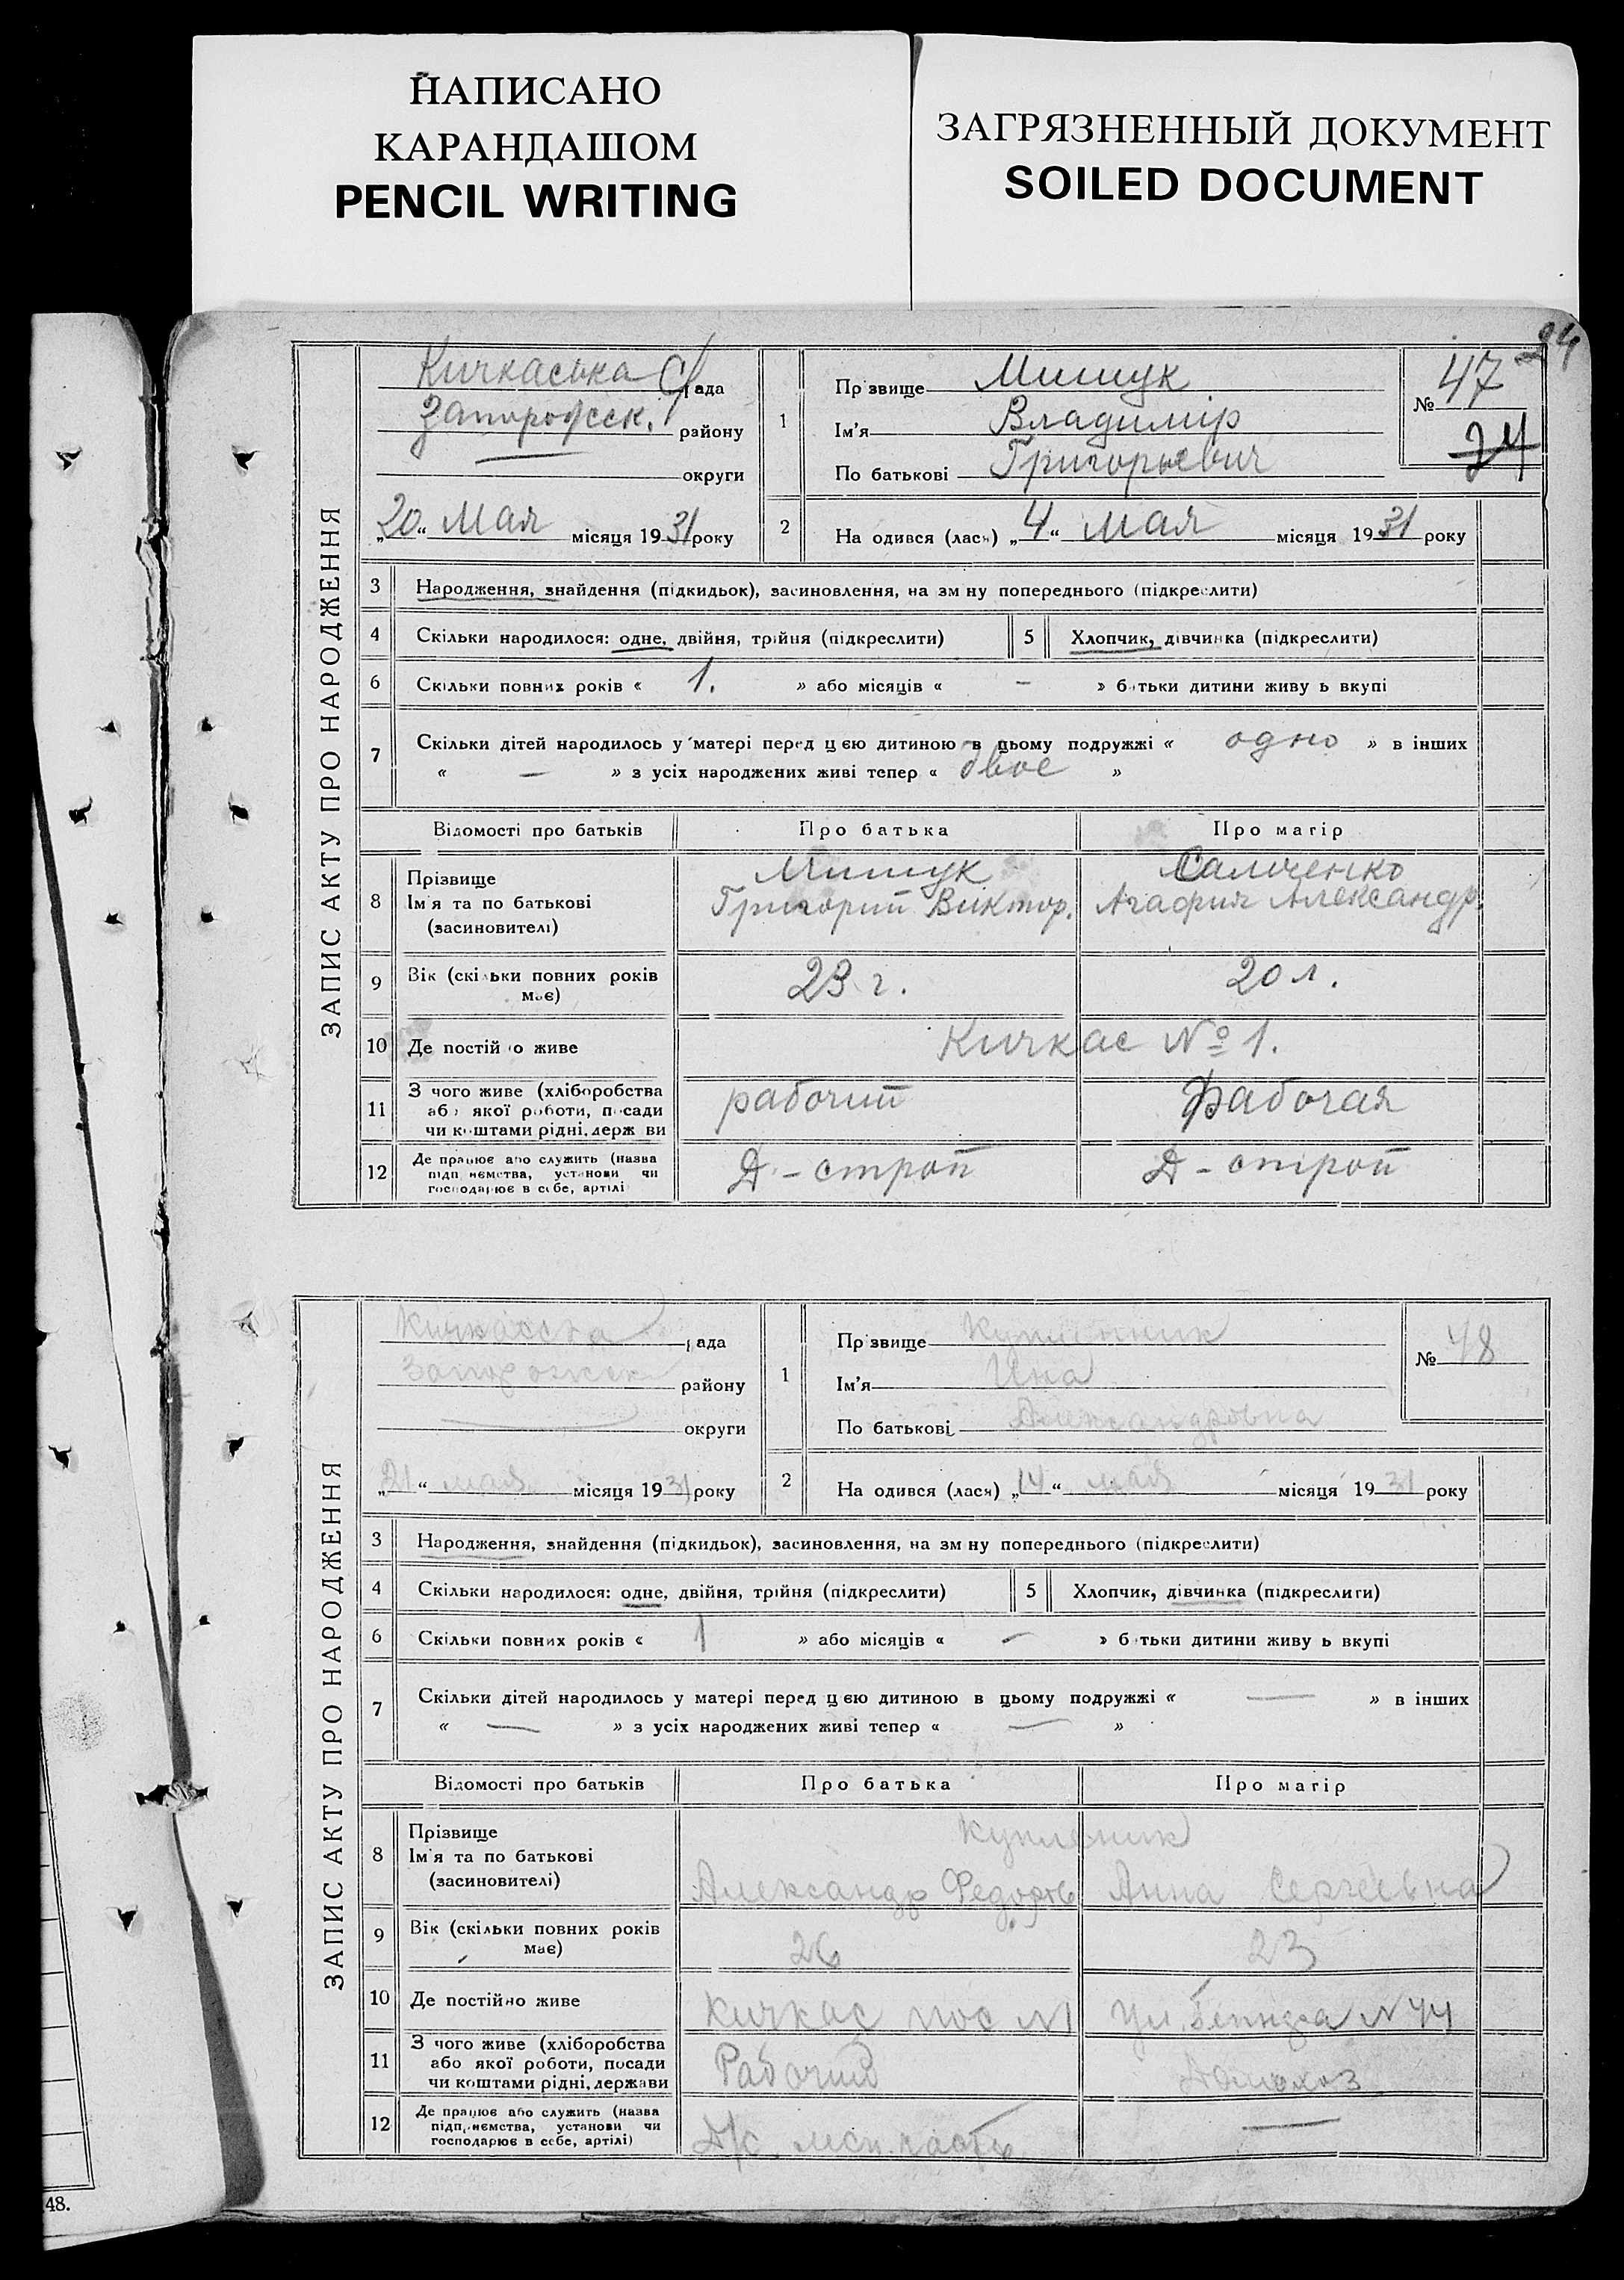 НАПИСАНО
КАРАНДАШОМ
PENCIL WRITING
ЗАГРЯЗНЕННЫЙ ДОКУМЕНТ
SOILED DOCUMENT
24
ЗАПИС АКТУ ПРО НАРОДЖЕННЯ
Кичкаська С/рада
Запорожск. району
— округи
„20“ Мая місяця 1931 року
1
Пр звище Мишук
Ім'я Владимір
По батькові Григорьевич
№ 47
24
2 На одився (лася) „4“ мая місяця 1931 року
3 Народження, знайдення (підкидьок), засиновлення, на зм ну попереднього (підкреслити)
4 Скільки народилося: одне, двійня, трійня (підкреслити) 5 Хлопчик, дівчинка (підкреслити)
6 Скільки повних років « 1. » або місяців « — » б тьки дитини живу ь вкупі
7 Скільки дітей народилось у матері перед цією дитиною в цьому подружжі « одно » в інших
« — » з усіх народжених живі тепер « двое »
Відомості про батьків Про батька Про матір
8 Прізвище
Ім'я та по батькові
(засиновителі)
Мишук
Григорий Виктор.
Самченко
Агафия Александр.
9 Вік (скільки повних років
має)
23 г. 20 л.
10 Де постій о живе Кичкас № 1.
11 З чого живе (хліборобства
або якої роботи, посади
чи коштами рідні, держ ви
рабочий Рабочая
12 Де працює або служить (назва
підп иємства, установи чи
господарює в себе, артілі
Д - строй Д - строй
ЗАПИС АКТУ ПРО НАРОДЖЕННЯ
Кичкасска рада
Запорожск району
— округи
„21“ мая місяця 1931 року
1
Пр звище
Ім'я Ина
По батькові Александровна
№ 48
2 На одився (лася) „14“ мая місяця 1931 року
3 Народження, знайдення (підкидьок), засиновлення, на зм ну попереднього (підкреслити)
4 Скільки народилося: одне, двійня, трійня (підкреслити) 5 Хлопчик, дівчинка (підкреслити)
6 Скільки повних років « 1 » або місяців « — » б тьки дитини живу ь вкупі
7 Скільки дітей народилось у матері перед цією дитиною в цьому подружжі « — » в інших
« — » з усіх народжених живі тепер « — »
Відомості про батьків Про батька Про матір
8 Прізвище
Ім'я та по батькові
(засиновителі)
Александр Федоров Анна Сергеевна
9 Вік (скільки повних років
має)
26 23
10 Де постійно живе Кичкас пос N1 Ул. N 44
11 З чого живе (хліборобства
або якої роботи, посади
чи коштами рідні, держави
Рабочий Домохоз
12 Де працює або служить (назва
підп иємства, установи чи
господарює в себе, артілі)
Д/с —
48.